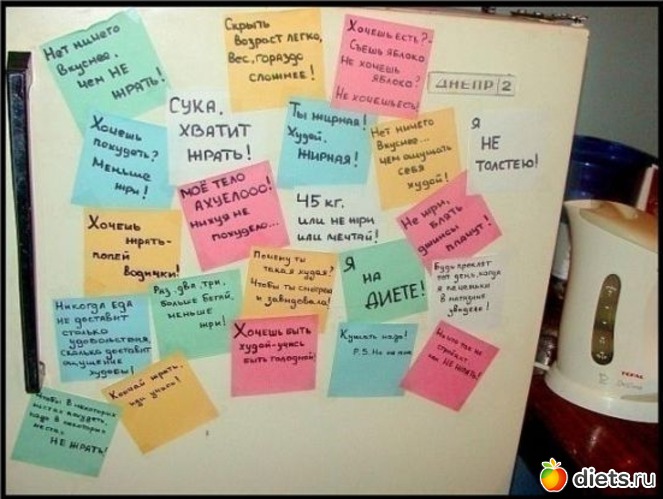 Нет ничего
Вкуснее,
чем НЕ
ЖРАТЬ!
Скрыть
Возраст легко,
Вес, гораздо
сложнее!
Хочешь есть?-
Съешь яблоко
Не хочешь
яблоко?
Не хочешь есть!
ДНЕПР 2
Хочешь
похудеть?
Меньше
жри!
СУКА,
ХВАТИТ
ЖРАТЬ!
Ты жирная!
Худей,
ЖИРНАЯ!
Нет ничего
Вкуснее...
чем ощущать
себя
худой!
Я
НЕ
ТОЛСТЕЮ!
МОЁ ТЕЛО
АХУЕЛООО!
нихуя не
похудело...
45 кг.
или не жри
или мечтай!
Не жри,
БЛЯТЬ
джинсы
плачут!
Хочешь
жрать-
попей
водички!
Раз, два, три,
больше бегай,
меньше
жри!
Почему ты
такая худая?
Чтобы ты смотрела
и завидовала!
Я
НА
ДИЕТЕ!
Будь проклят
тот день, когда
я печеньки
в магазине
увидела!
Никогда еда
не доставит
столько
удовольствия,
сколько доставит
ощущение
худобы!
Хочешь быть
худой-учись
быть голодной!
Кушать надо!
P.S. Но не
Ничто так не
стройнит
как НЕ ЖРАТЬ!
Кончай жрать,
иди учись!
Чтобы в некоторых
местах похудеть,
надо в некоторых
местах
НЕ ЖРАТЬ!
TEFAL
diets.ru